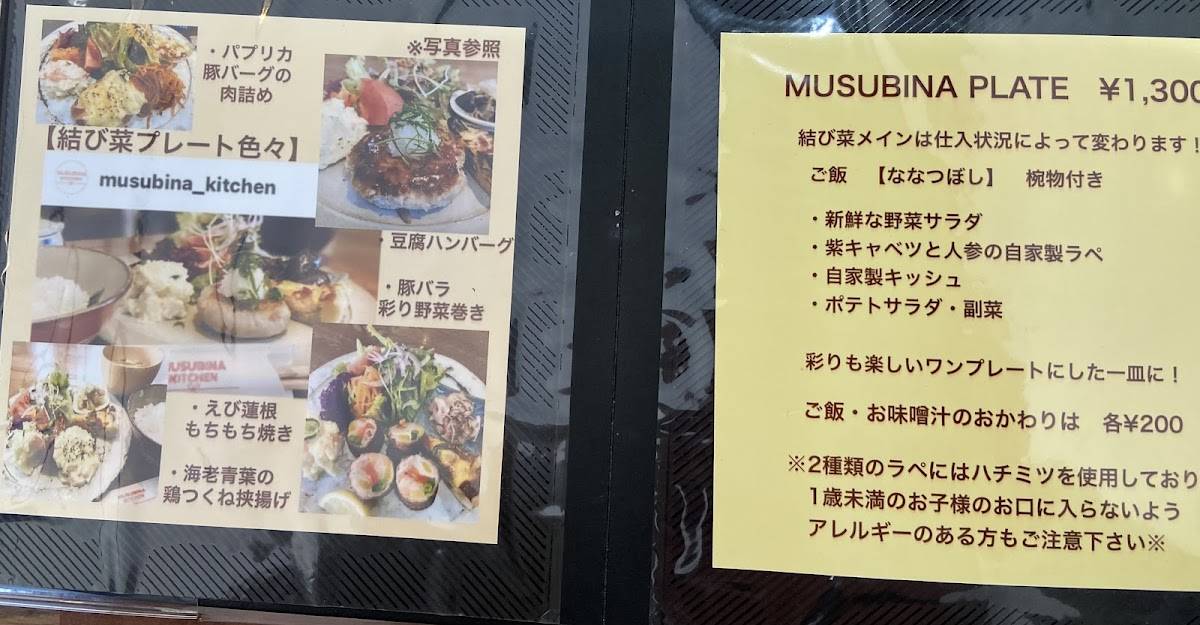 ・パプリカ
豚バーグの
肉詰め
※写真参照
【結び菜プレート色々】
MUSUBINA
KITCHEN
musubina_kitchen
・豆腐ハンバーグ
・豚バラ
彩り野菜巻き
MUSUBINA
KITCHEN
・えび蓮根
もちもち焼き
・海老青葉の
鶏つくね挟揚げ
MUSUBINA PLATE ¥1,300
結び菜メインは仕入状況によって変わります!
ご飯 【ななつぼし】 椀物付き
・新鮮な野菜サラダ
・紫キャベツと人参の自家製ラペ
・自家製キッシュ
・ポテトサラダ・副菜
彩りも楽しいワンプレートにした一皿に!
ご飯・お味噌汁のおかわりは 各¥200
※2種類のラペにはハチミツを使用しており
1歳未満のお子様のお口に入らないよう
アレルギーのある方もご注意下さい※